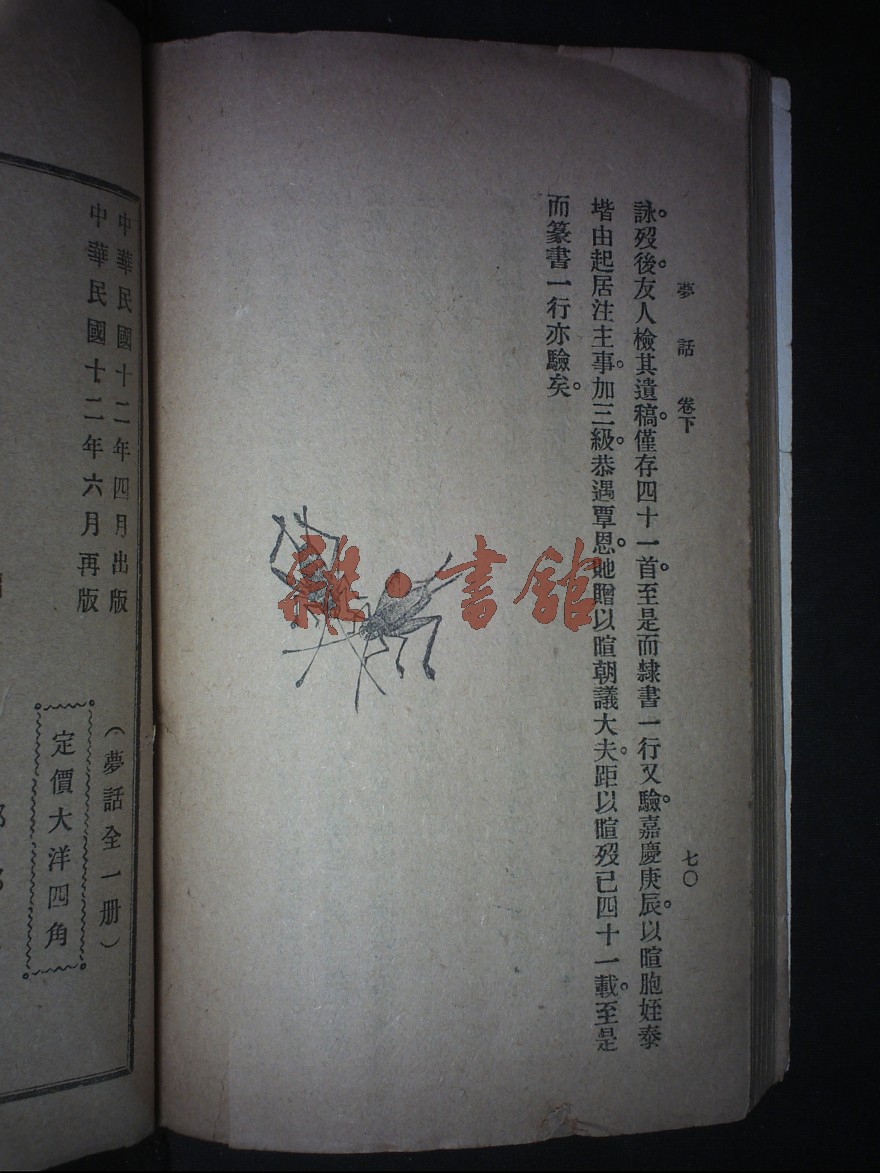 夢話 卷下
七〇
詠歿。後友人檢其遺稿。僅存四十一首。至是而隸書一行又驗。嘉慶庚辰。以暄胞姪泰
堦由起居注主事。加三級。恭遇覃恩。貤贈以暄朝議大夫。距以暄歿已四十一載。至是
而篆書一行亦驗矣。
雜·書館
中華民國十二年四月出版
中華民國十二年六月再版
（夢話全一册）
定價大洋四角